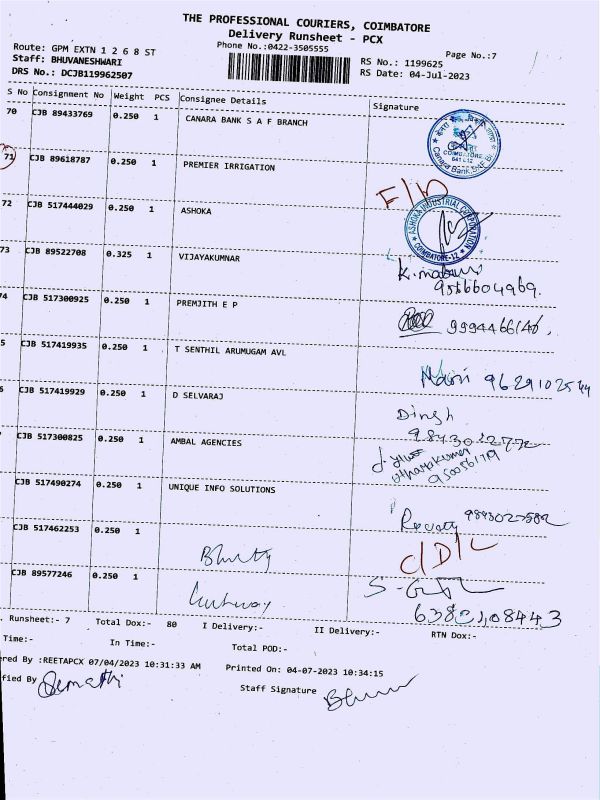 THE PROFESSIONAL COURIERS, COIMBATORE
Delivery Runsheet - PCX
Phone No.:0422-3505555
Page No.:7
Route: GPM EXTN 1 2 6 8 ST
Staff: BHUVANESHWARI
DRS No.: DCJB119962507
RS No.: 1199625
RS Date: 04-Jul-2023
S No Consignment No Weight PCS Consignee Details Signature
70 CJB 89433769 0.250 1 CANARA BANK S A F BRANCH
COIMBATORE
71 CJB 89618787 0.250 1 PREMIER IRRIGATION
72 CJB 517444029 0.250 1 ASHOKA
ASHOKA INDUSTRIAL CORPORATION
COIMBATORE-12
73 CJB 89522708 0.325 1 VIJAYAKUMNAR
74 CJB 517300925 0.250 1 PREMJITH E P
5 CJB 517419935 0.250 1 T SENTHIL ARUMUGAM AVL
6 CJB 517419929 0.250 1 D SELVARAJ
CJB 517300825 0.250 1 AMBAL AGENCIES
CJB 517490274 0.250 1 UNIQUE INFO SOLUTIONS
CJB 517462253 0.250 1
C/D/L
CJB 89577246 0.250 1
Runsheet:- 7 Total Dox:- 80 I Delivery:- II Delivery:- RTN Dox:-
Time:- In Time:- Total POD:-
ered By :REETAPCX 07/04/2023 10:31:33 AM Printed On: 04-07-2023 10:34:15
fied By Staff Signature